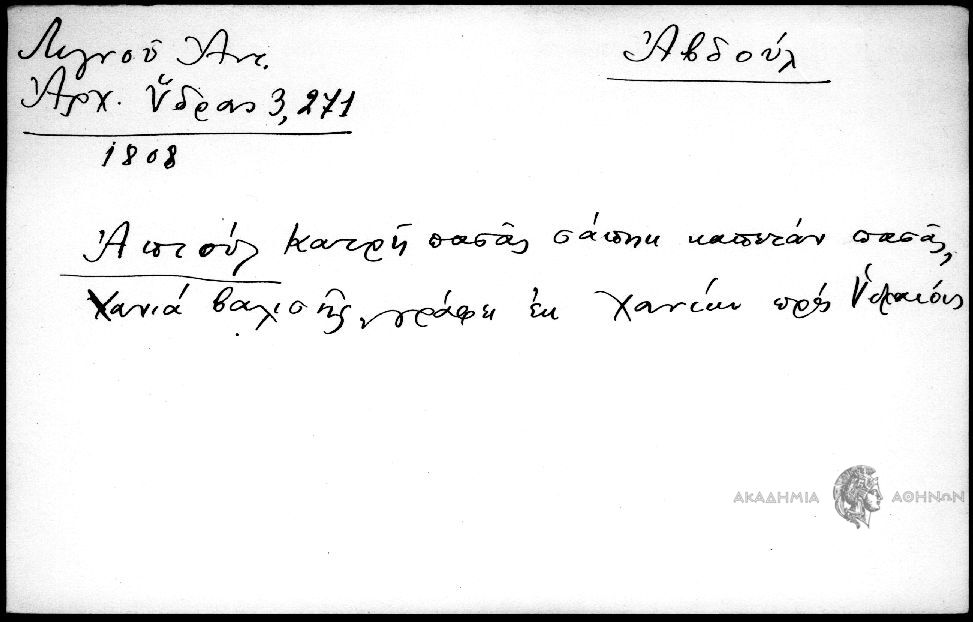 Λιγνοῦ Ἀντ.
Ἀβδούλ
Ἀρχ. Ὕδρας 3, 271
1808
Ἀπτούλ Κατρῆ πασᾶς σάπηκ καπετάν πασᾶς,
Χανιά βαλισῆς, γράφει ἐκ Χανίων πρός Ὑδραίους
ΑΚΑΔΗΜΙΑ ΑΘΗΝΩΝ